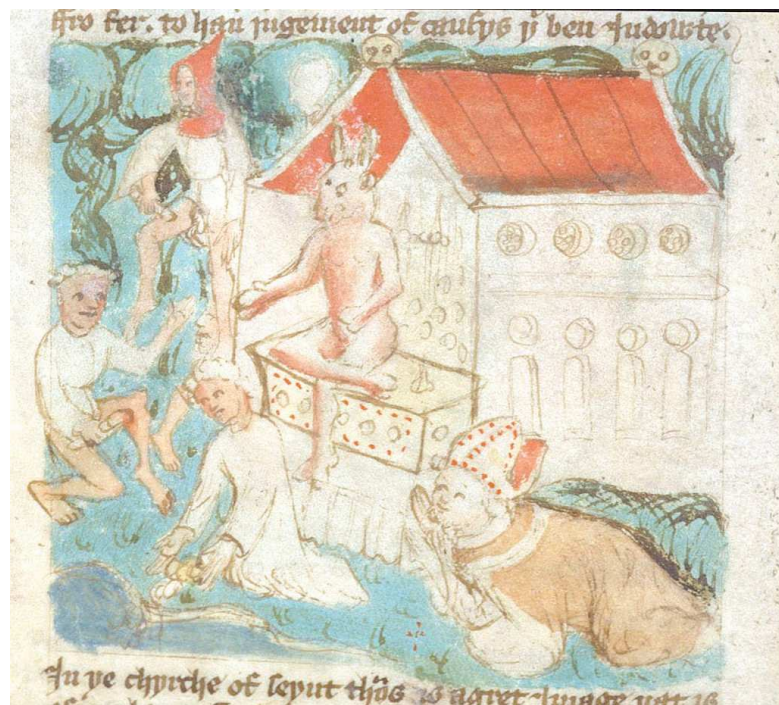 ffro fer. to hau jugement of causys yͭ ben Indowte.
In ye chyrche of seynt thoͫs is agret Image yat is